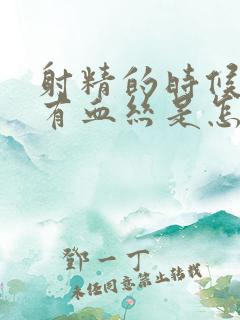 射精的时候
有血丝是怎
鄧一丁
未经同意禁止转载